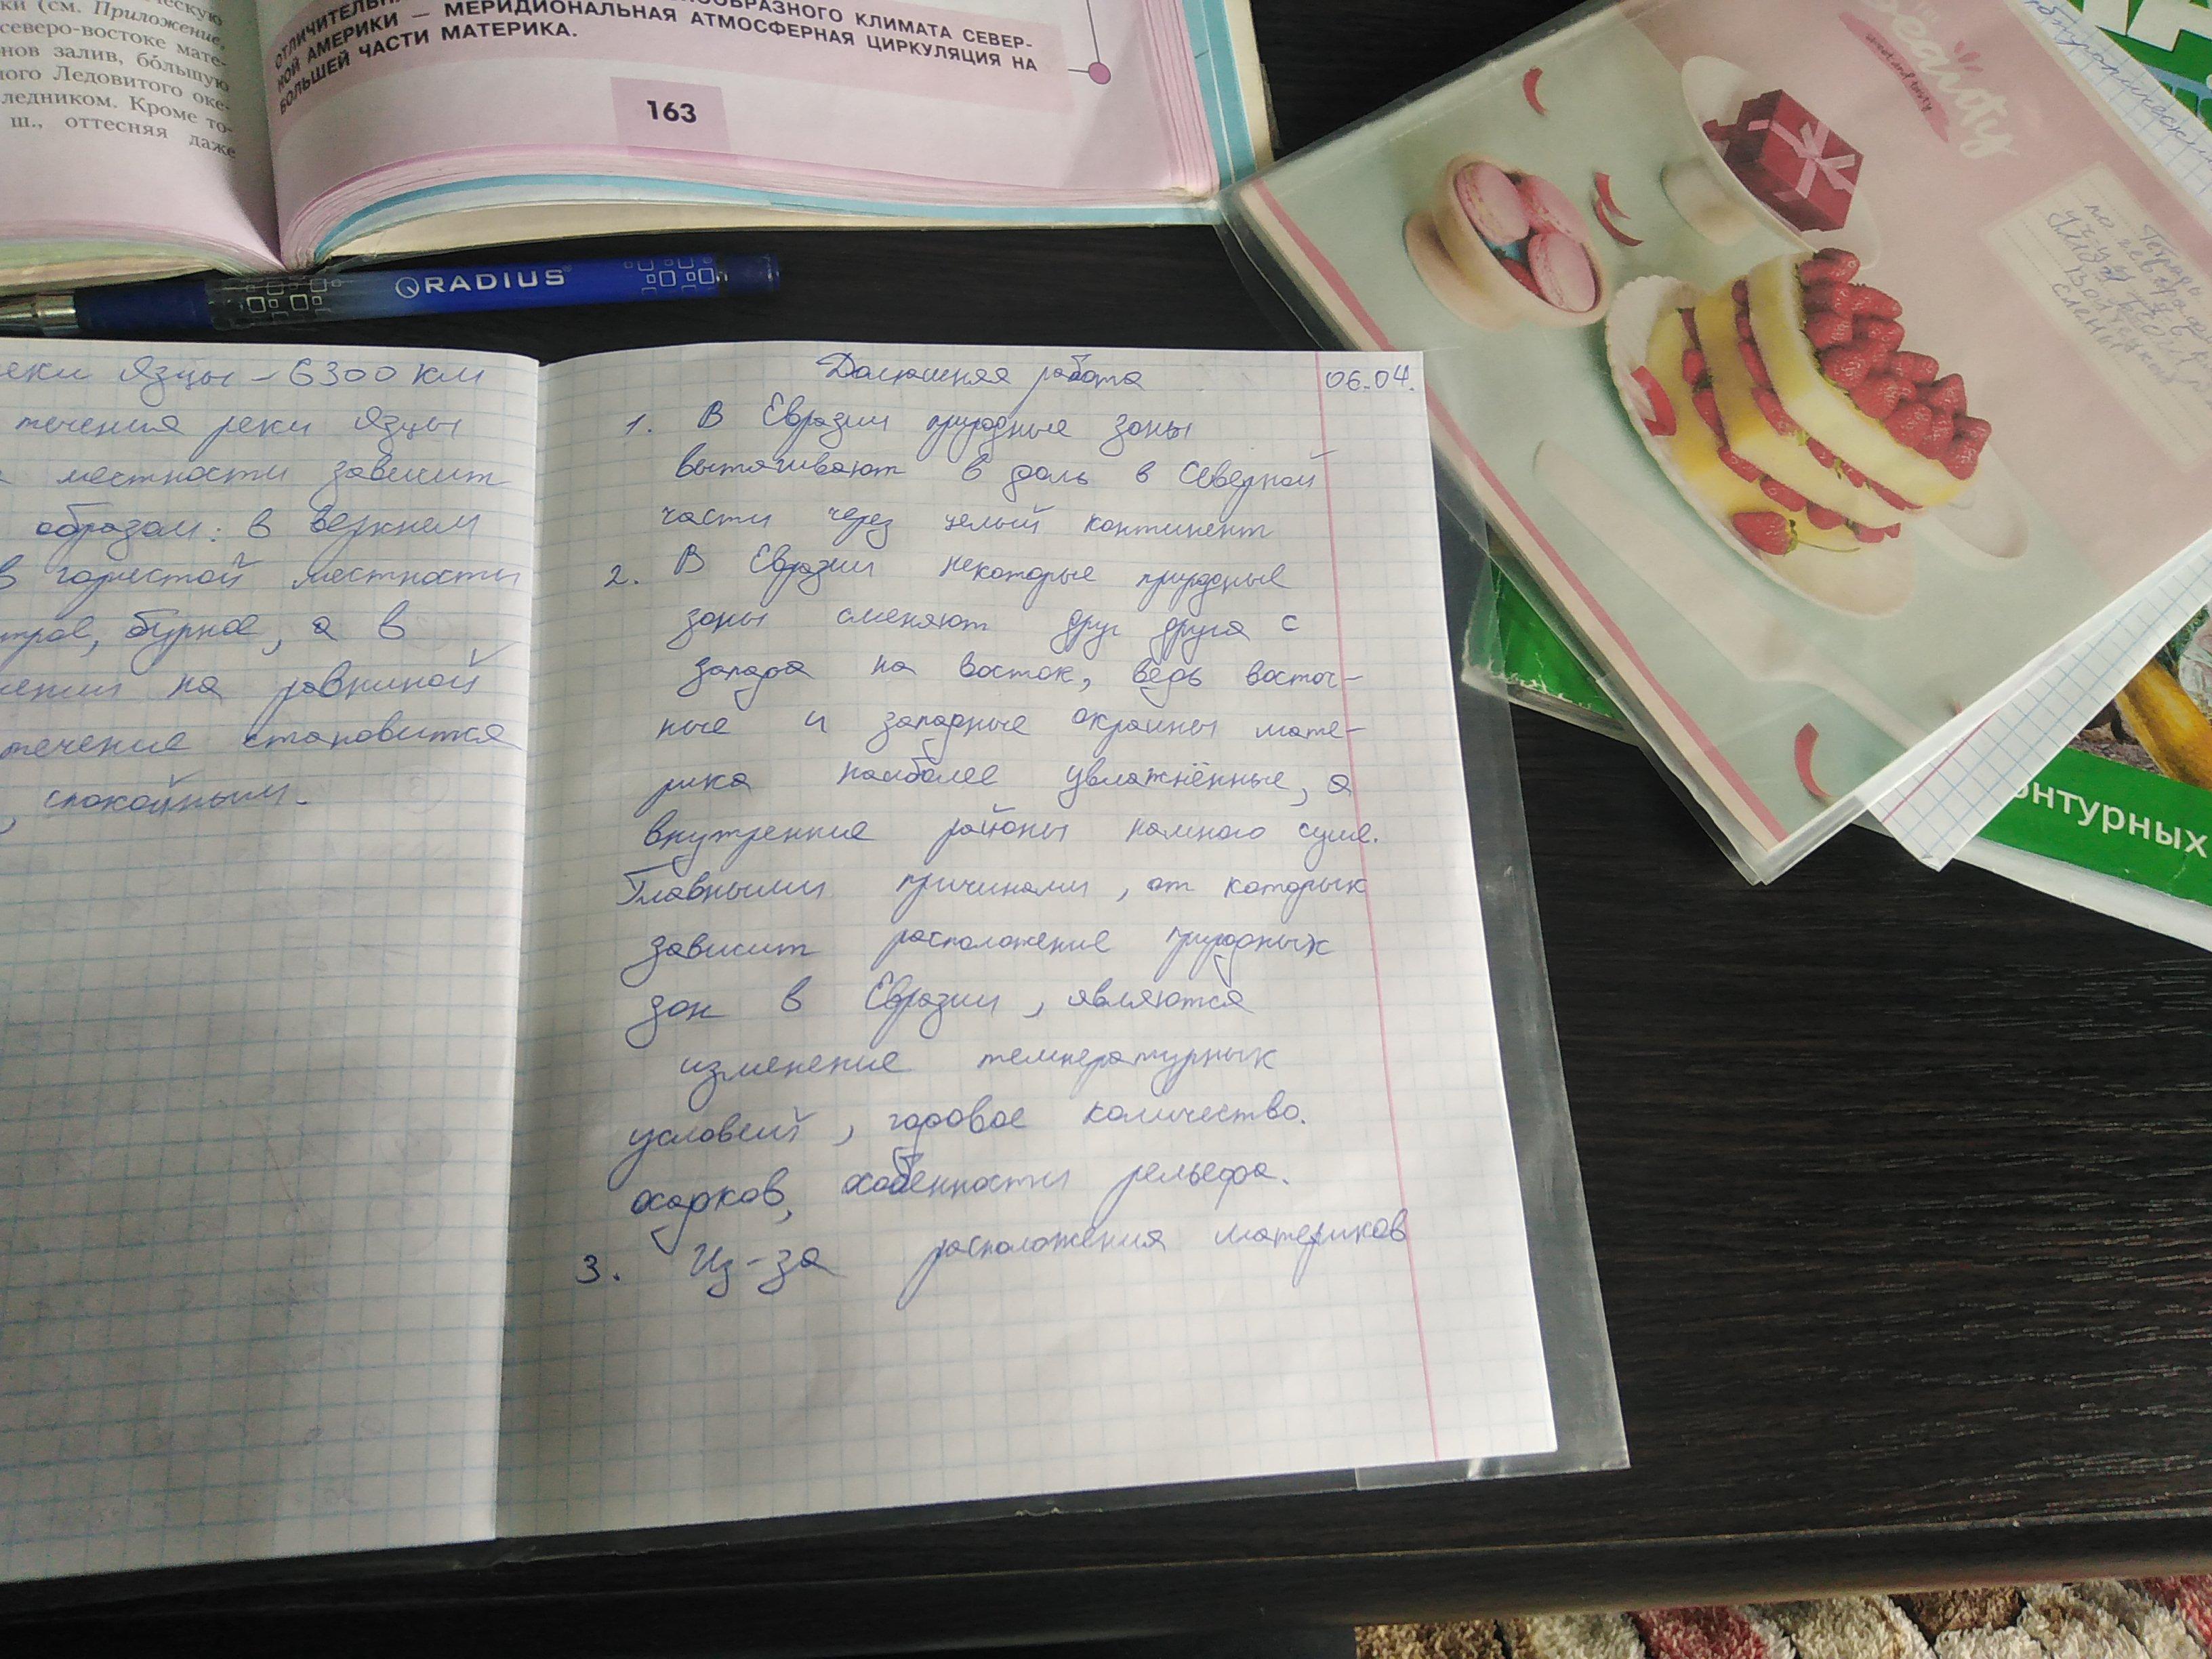 ки (см. Приложение,
северо-востоке мате-
нов залив, бо́льшую
ного Ледовитого оке-
ледником. Кроме то-
ш., оттесняя даже
ОТЛИЧИТЕЛЬН
ООБРАЗНОГО КЛИМАТА СЕВЕР-
НОЙ АМЕРИКИ — МЕРИДИОНАЛЬНАЯ АТМОСФЕРНАЯ ЦИРКУЛЯЦИЯ НА
БОЛЬШЕЙ ЧАСТИ МАТЕРИКА.
163
RADIUS
реки Язцы - 6300 км
течения реки Язцы
местности зависит
образом: в верхнем
в гористой местности
бурное, а в
на равниной
течение становится
, спокойным.
Домашняя работа 06.04.
1. В Евразии природные зоны
вытягивают в даль в Северной
части через целый континент
2. В Евразии некоторые природные
зоны сменяют друг друга с
запада на восток, ведь восточ-
ные и западные окраины мате-
рика наиболее увлажнённые, а
внутренние районы намного суше.
Главными причинами, от которых
зависит расположение природных
зон в Евразии, являются
изменение температурных
условий, годовое количество.
осадков, особенности рельефа.
3. Из-за расположения материков
Beauty
Тетрадь
по
онтурных